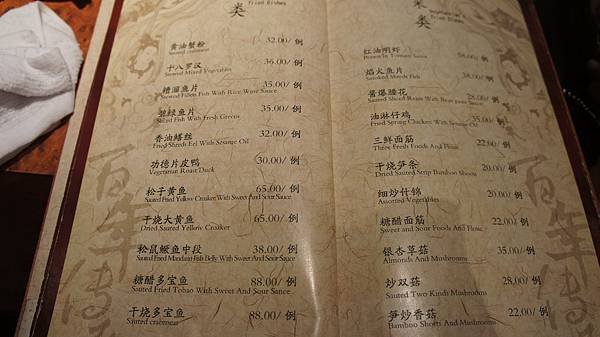 类
Fried Dishes
黄油蟹粉 32.00/ 例
Sauteed crabmeat
十八罗汉 36.00/ 例
Stewed Mixed Vegetables
糟溜鱼片 35.00/ 例
Sauted Fillets Fish With Rice Wine Sauce
碧绿鱼片 35.00/ 例
Sauted Fish With Fresh Greens
香油鳝丝 32.00/ 例
Fried Shreds Eel With Sesame Oil
功德片皮鸭 30.00/ 例
Vegetarian Roast Duck
松子黄鱼 65.00/ 例
Sauted Fried Yellow Croaker With Sweet And Sour Sauce
干烧大黄鱼 65.00/ 例
Dried Sauted Yellow Croaker
松鼠鳜鱼中段 38.00/ 例
Sauted Fried Mandarin Fish Belly With Sweet And Sour Sauce
糖醋多宝鱼 88.00/ 例
Sauted Fried Tobao With Sweet And Sour Sauce
干烧多宝鱼 88.00/ 例
Sauted crabmeat
菜类
Fried Dishes
红油明虾 58.00/ 例
Prawn In Tomato Sauce
焰火鱼片 38.00/ 例
Smoked Mandi Fish
酱爆腰花 28.00/ 例
Sauted Sliced Kidney With Bean paste Sauce
油淋仔鸡 35.00/ 例
Fried Spring Chicken With Sesame Oil
三鲜面筋 22.00/ 例
Three Fresh Foods And Pasta
干烧笋条 20.00/ 例
Dried Sauted Strip Bamboo Shoots
细炒什锦 20.00/ 例
Assorted Vegetables
糖醋面筋 22.00/ 例
Sweet and Sour Foods And Flour
银杏草菇 35.00/ 例
Almonds And Mushrooms
炒双菇 28.00/ 例
Sauted Two Kinds Mushrooms
笋炒香菇 22.00/ 例
Bamboo Shoots And Mushrooms
百年传
百年传